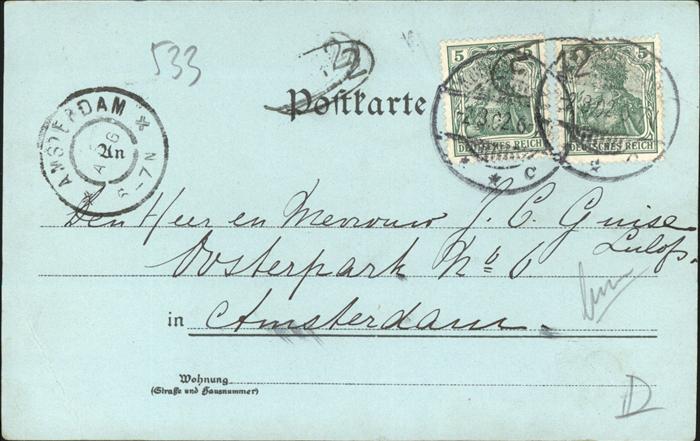 533
22
Postkarte
5
5
DEUTSCHES REICH
DEUTSCHES REICH
AMSTERDAM
An
Den Heer en Mevrouw J. C. Guise
Lulofs.
Oosterpark No 6
in Amsterdam.
Wohnung
(Straße und Hausnummer)
D